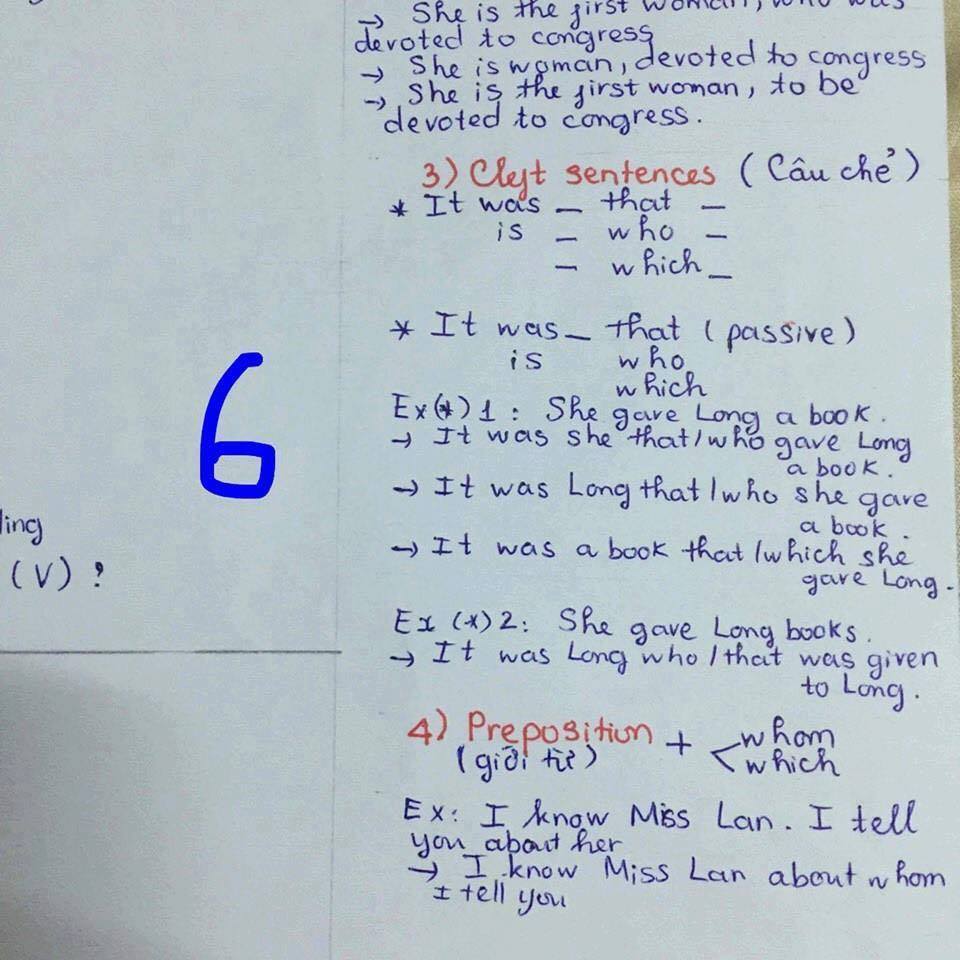 → She is the first woman, who was
devoted to congress
→ She is woman, devoted to congress
→ She is the first woman, to be
devoted to congress.
3) Cleft sentences (Câu chẻ)
* It was _ that _
is _ who _
_ which _
* It was _ that (passive)
is who
which
Ex(*)1: She gave Long a book.
→ It was she that/who gave Long
a book.
→ It was Long that/who she gave
a book.
→ It was a book that/which she
gave Long.
Ex (*)2: She gave Long books.
→ It was Long who/that was given
to Long.
4) Preposition + < whom
(giới từ) which
Ex: I know Miss Lan. I tell
you about her
→ I know Miss Lan about whom
I tell you
6
ling
(V) ?